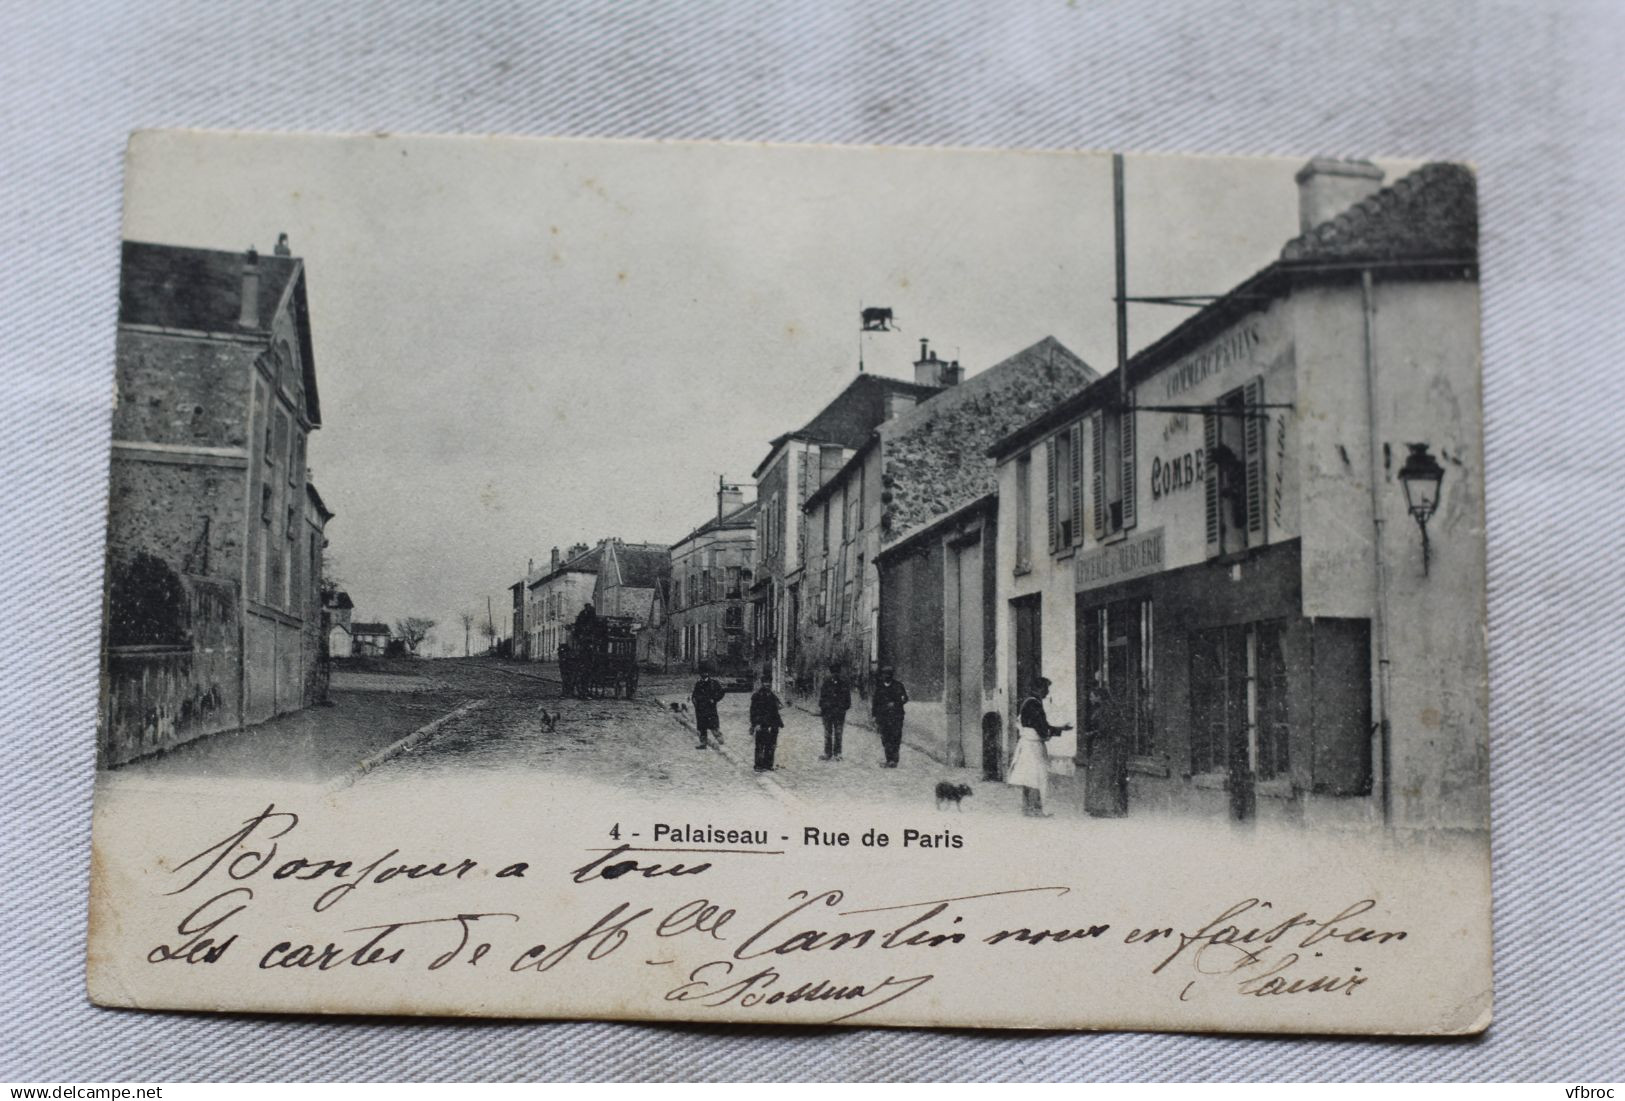 COMMERCE DE VINS
COMBE
BILLARD
EPICERIE & MERCERIE
4 - Palaiseau - Rue de Paris
Bonjour a tous
Les cartes de Mlle Cantin nous en fait bien
Plaisir
vfbroc
https://www.delcampe.net